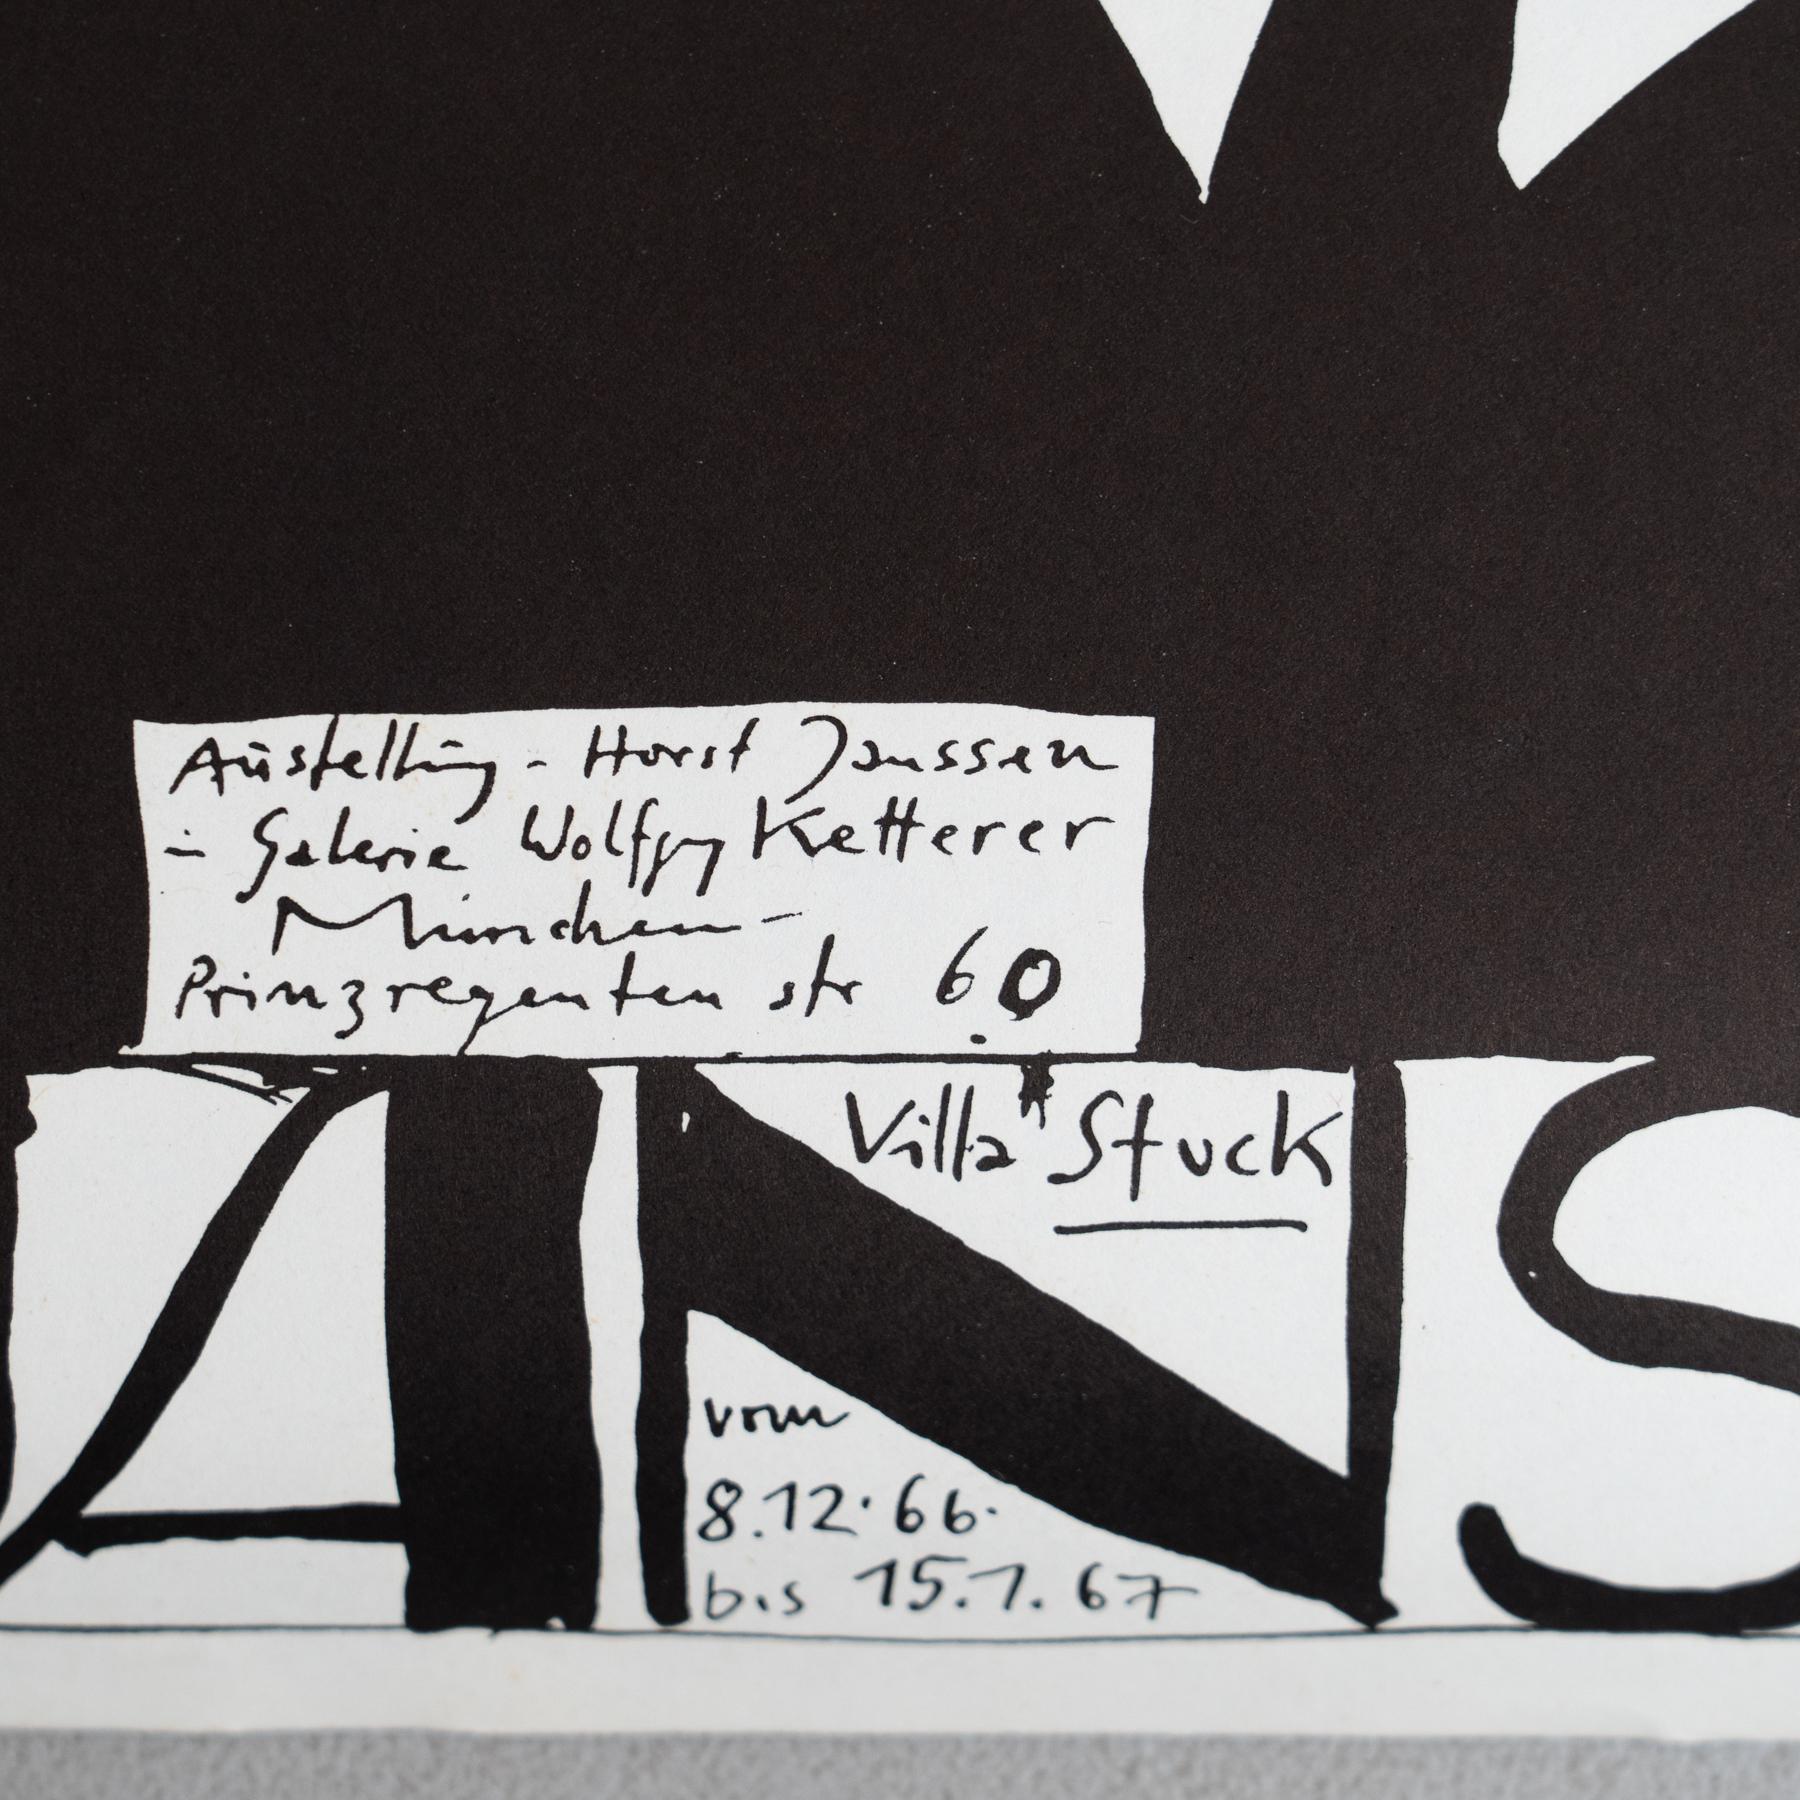 Ausstellung - Horst Janssen
- Galerie Wolfgang Ketterer
München -
Prinzregentenstr 60
Villa Stuck
vom
8.12.66.
bis 15.1.67
ANS